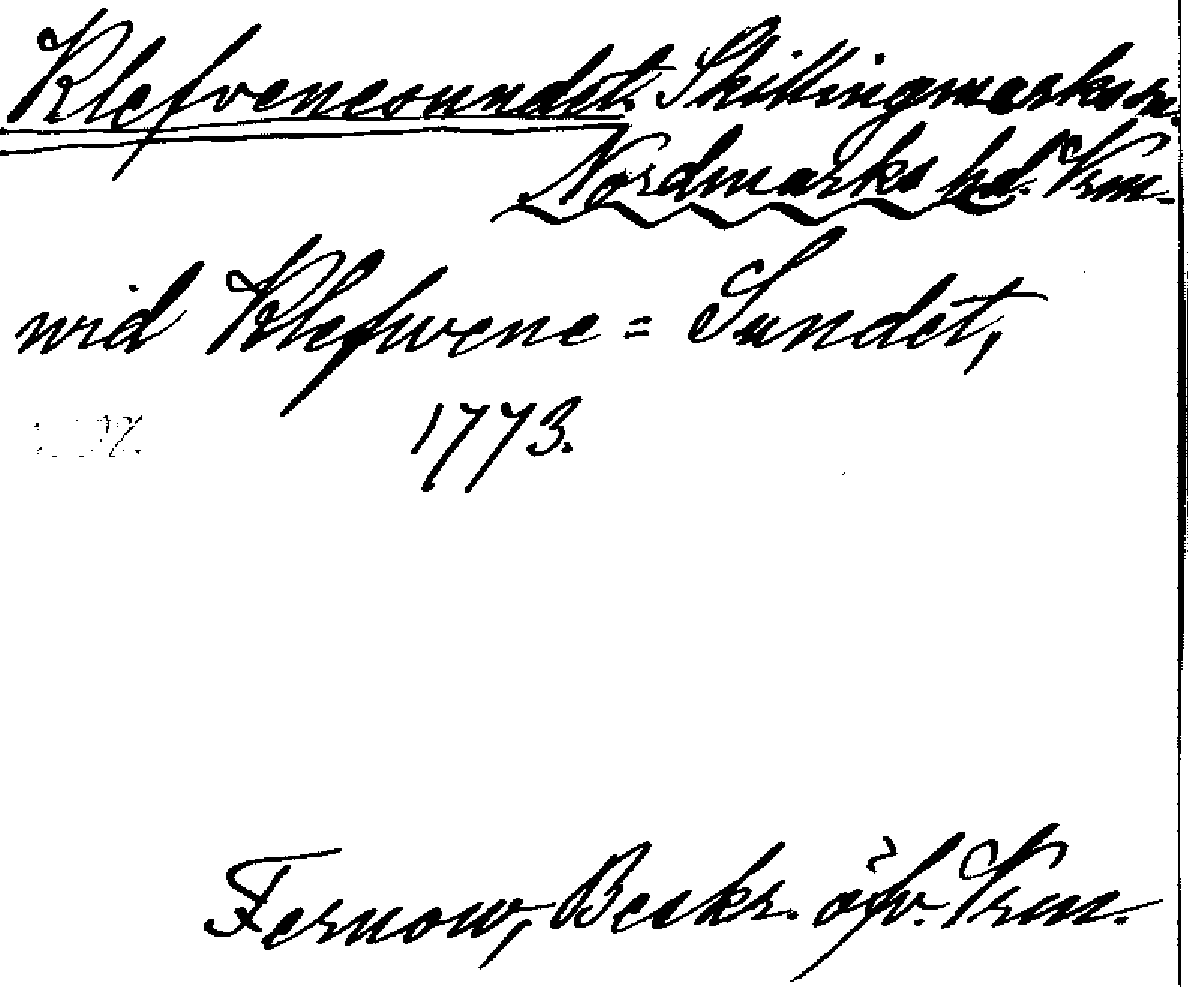 Klefvenesundet. Skillingmarks sn.
Nordmarks hd. Vrm.
wid Klefwene = Sundet,
1773.
Fernow, Beskr. öfv. Vrm.